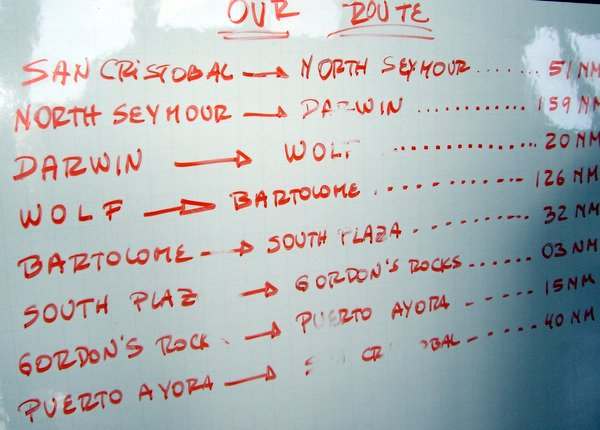 OUR ROUTE
SAN CRISTOBAL → NORTH SEYMOUR ...... 51 NM
NORTH SEYMOUR → DARWIN ........... 159 NM
DARWIN → WOLF ............... 20 NM
WOLF → BARTOLOME ........... 126 NM
BARTOLOME → SOUTH PLAZA ......... 32 NM
SOUTH PLAZ → GORDON'S ROCKS ...... 03 NM
GORDON'S ROCK → PUERTO AYORA ...... 15 NM
PUERTO AYORA → S CR OBAL ...... 40 NM